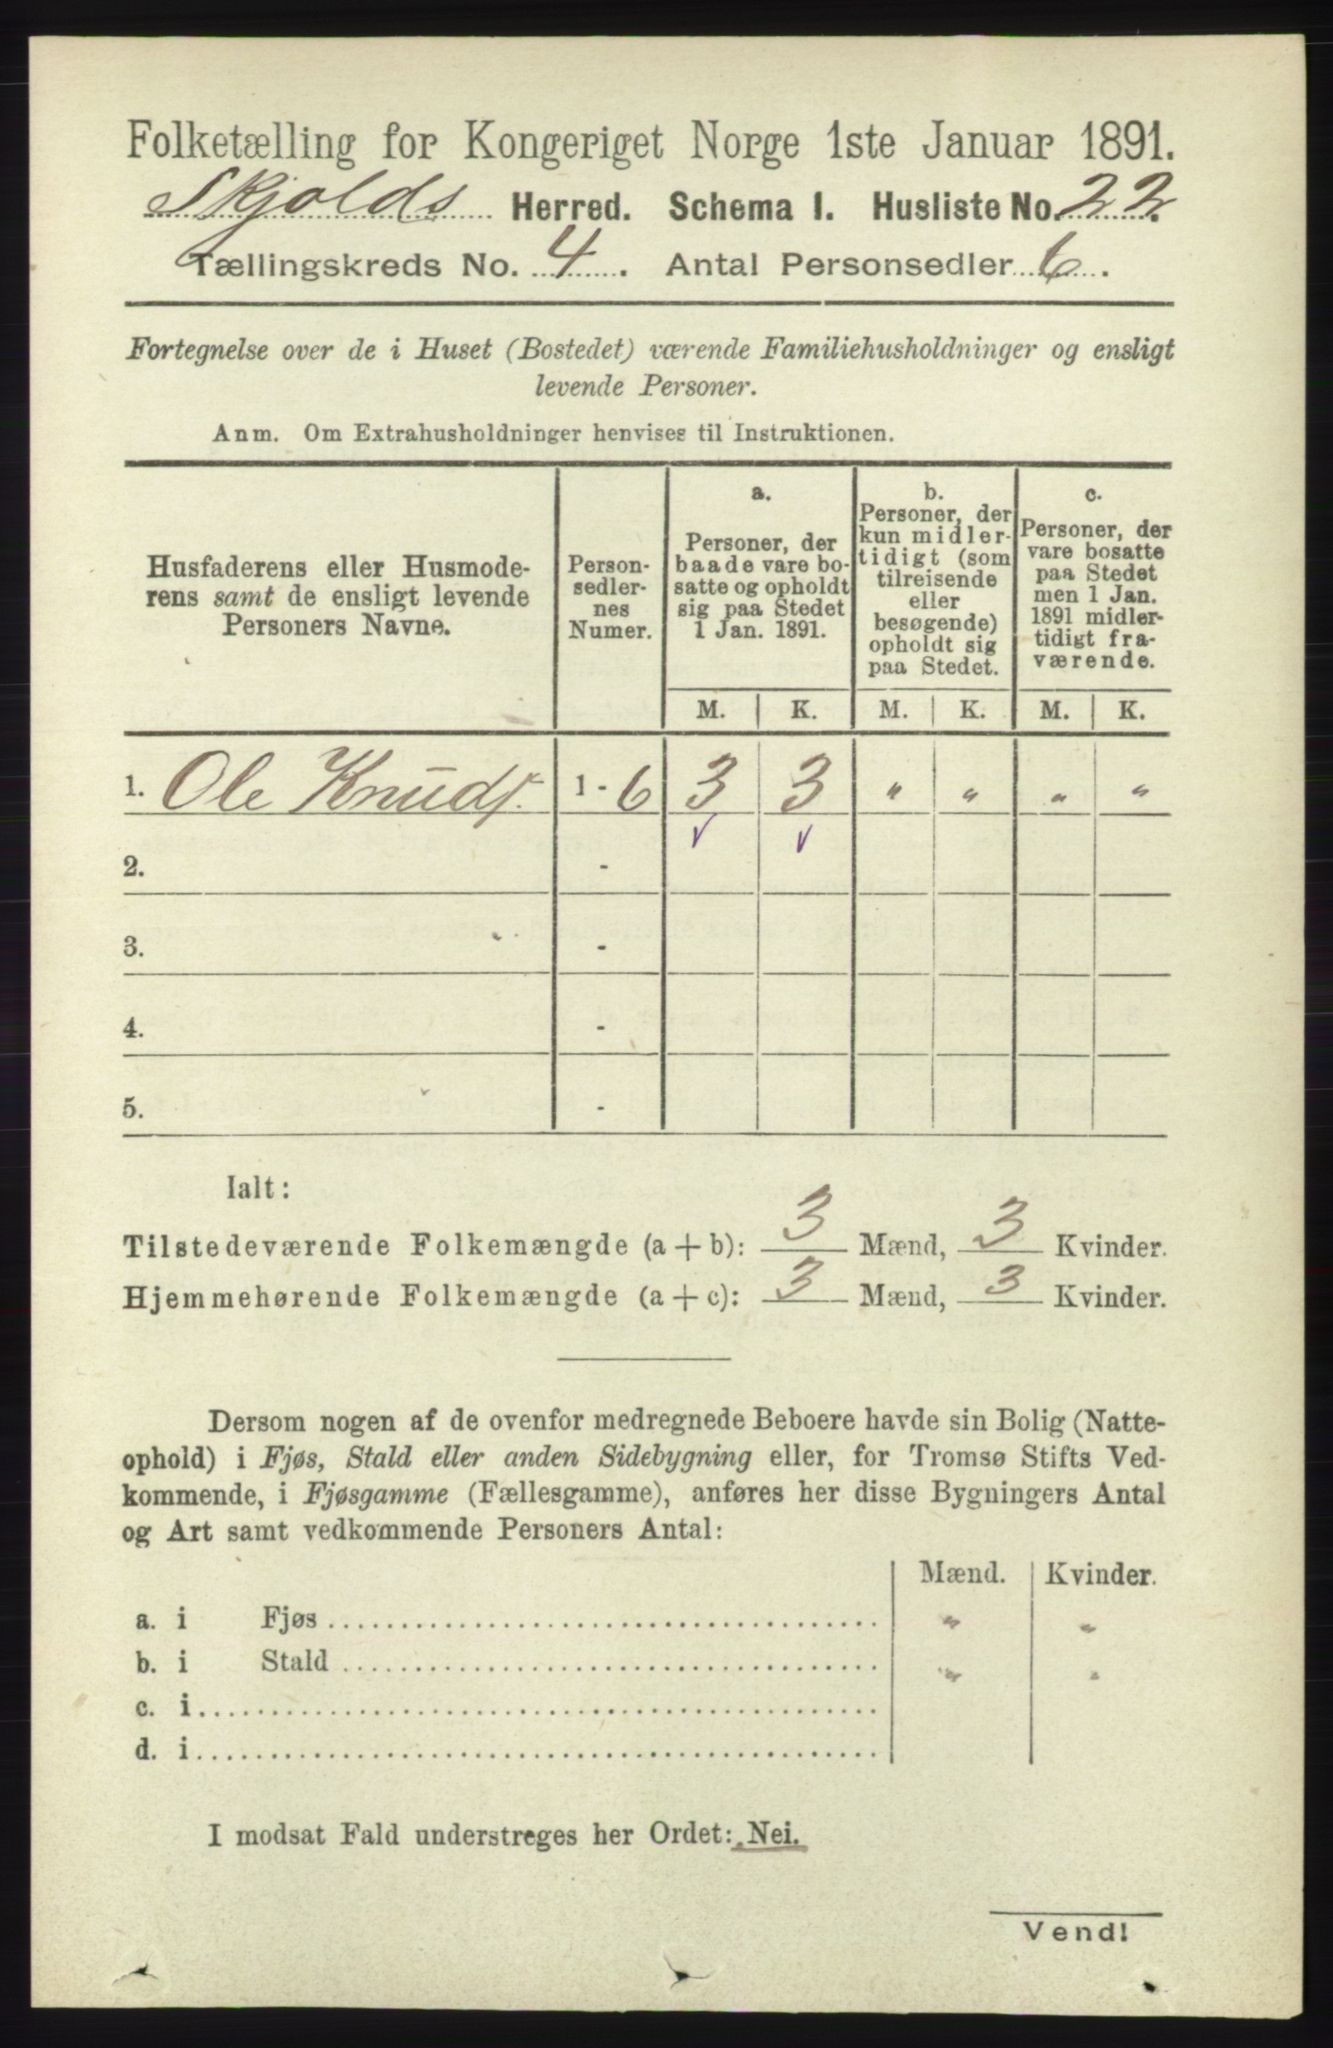 Folketælling for Kongeriget Norge 1ste Januar 1891.
Skjolds Herred. Schema I. Husliste No. 22.
Tællingskreds No. 4. Antal Personsedler 6.
Fortegnelse over de i Huset (Bostedet) værende Familiehusholdninger og ensligt
levende Personer.
Anm. Om Extrahusholdninger henvises til Instruktionen.
Husfaderens eller Husmode-
rens samt de ensligt levende
Personers Navne.
Person-
sedler-
nes
Numer.
a.
Personer, der
baade vare bo-
satte og opholdt
sig paa Stedet
1 Jan. 1891.
b.
Personer, der
kun midler-
tidigt (som
tilreisende
eller
besøgende)
opholdt sig
paa Stedet.
c.
Personer, der
vare bosatte
paa Stedet
men 1 Jan.
1891 midler-
tidigt fra-
værende.
M. K. M. K. M. K.
1. Ole Knuds. 1 - 6 3 3 " " " "
2. -
3. -
4. -
5. -
Ialt:
Tilstedeværende Folkemængde (a + b): 3 Mænd, 3 Kvinder.
Hjemmehørende Folkemængde (a + c): 3 Mænd, 3 Kvinder.
Dersom nogen af de ovenfor medregnede Beboere havde sin Bolig (Natte-
ophold) i Fjøs, Stald eller anden Sidebygning eller, for Tromsø Stifts Ved-
kommende, i Fjøsgamme (Fællesgamme), anføres her disse Bygningers Antal
og Art samt vedkommende Personers Antal:
Mænd. Kvinder.
a. i Fjøs " "
b. i Stald " "
c. i
d. i
I modsat Fald understreges her Ordet: Nei.
Vend!